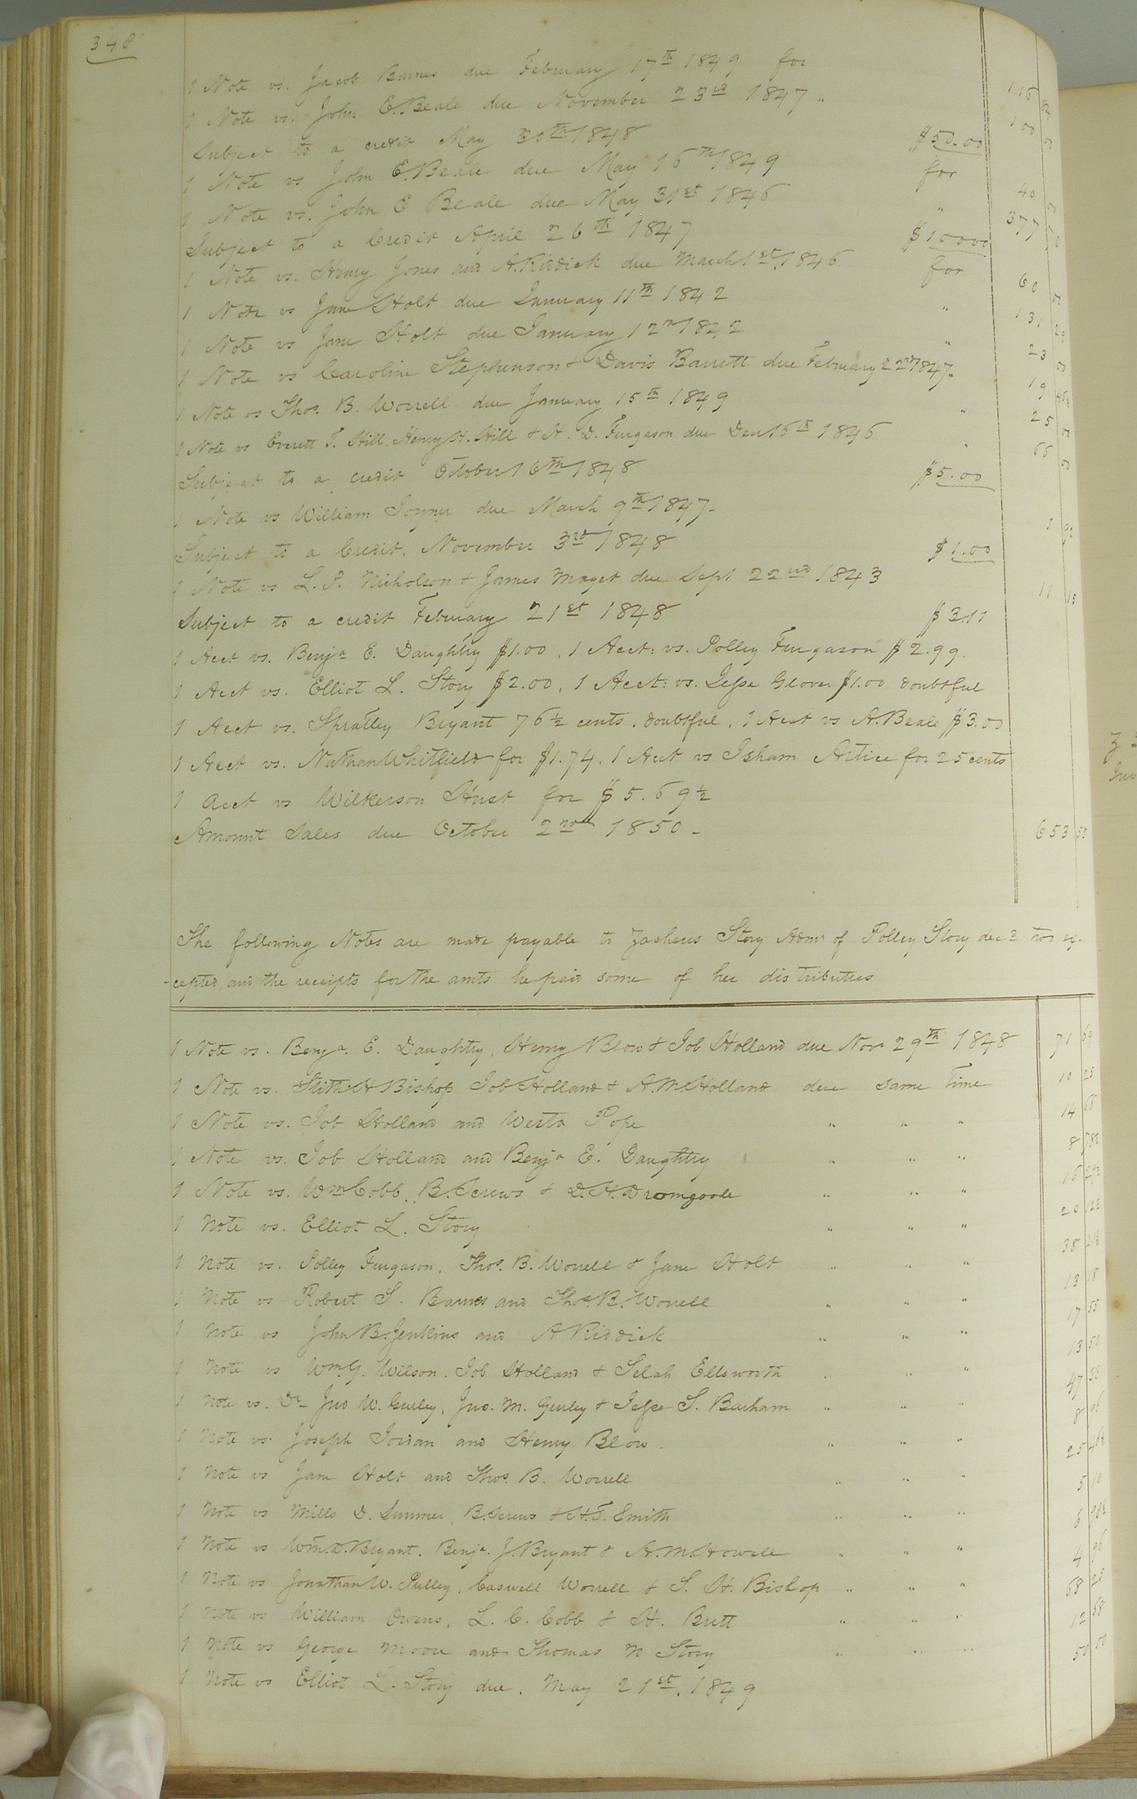 348
1 Note vs. Jacob Barnes due February 17th 1849 for 116
1 Note vs. John E. Beale due November 23rd 1847 " 100
Subject to a credit May 30th 1848 $50.00
1 Note vs John E. Beale due May 16th 1849 for 40
1 Note vs. John E Beale due May 31st 1846 " 377
Subject to a Credit April 26th 1847 $100.00
1 Note vs. Henry Jones and A. Riddick due March 1st 1846 for 60
1 Note vs Jane Holt due January 11th 1842 " 131
1 Note vs Jane Holt due January 12th 1842 " 23
1 Note vs Caroline Stephenson & Davis Barrett due February 22nd 1847 19
1 Note vs Thos. B. Worrell due January 15th 1849 " 25
1 Note vs Everett T. Hill, Henry H. Hill & H. D. Furgason due Dec 15th 1846 " 66
Subject to a credit October 16th 1848 $5.00
1 Note vs William Joyner due March 9th 1847
Subject to a Credit, November 3rd 1848 $1.00
1 Note vs L. P. Nicholson & James Maget due Sept 22nd 1843 11 15
Subject to a credit February 21st 1848 $3.11
1 Acct vs. Benja E. Daughtry $1.00, 1 Acct: vs. Polley Furgason $2.99.
1 Acct vs. Elliot L. Story $2.00, 1 Acct: vs. Jesse Glover $1.00 doubtful
1 Acct vs. Spratley Bryant 76½ cents. doubtful, 1 Acct vs A. Beale $3.00
1 Acct vs. Nathan Whitfield for $1.74, 1 Acct vs Isham Artice for 25 cents
1 Acct vs Wilkerson Hust for $5.69½
Amount Sales due October 2nd 1850 - 653 55
The following Notes are made payable to Zacheus Story Admr of Polley Story decd two ex-
-cepted, and the receipts for the amts he paid some of her distributies
1 Note vs. Benja. E. Daughtry, Henry Blow & Job Holland due Nov 29th 1848 71 64
1 Note vs. Smith H Bishop Job Holland & A. M. Holland due same time 10 25
1 Note vs. Job Holland and Weste Pope " " " 14 65
1 Note vs. Job Holland and Benja E. Daughtry " " " 8
1 Note vs. Wm Cobb, B. Screws & D. H. Dromgoole " " " 16
1 Note vs. Elliot L. Story " " " 20
1 Note vs. Polley Furgason, Thos. B. Worrell & Jane Holt " " " 38
1 Note vs Robert S. Barnes and Thos. B. Worrell " " " 13 18
1 Note vs John B. Jenkins and A Riddick " " " 17 55
1 Note vs Wm. G. Wilson, Job Holland & Selah Ellsworth " " " 13 50
1 Note vs. Dr Jno W. Gurley, Jno. M. Gurley & Jesse S. Barham " " " 47
1 Note vs. Joseph Jordan and Henry Blow. " " " 8 06
1 Note vs Jane Holt and Thos. B. Worrell " " " 25
1 Note vs Mills D. Sumner, B. Screws & H. T. Smith " " " 5 10
1 Note vs Wm. D. Bryant. Benja. J. Bryant & A. M. Howell " " " 6
1 Note vs Jonathan W. Pulley, Caswell Worrell & S. H. Bishop " " " 4 96
1 Note vs William Owens, L. C. Cobb & H. Britt " " " 68 25
1 Note vs George Moore and Thomas N Story " " " 12 68
1 Note vs Elliot L. Story due. May 21st, 1849 50 00